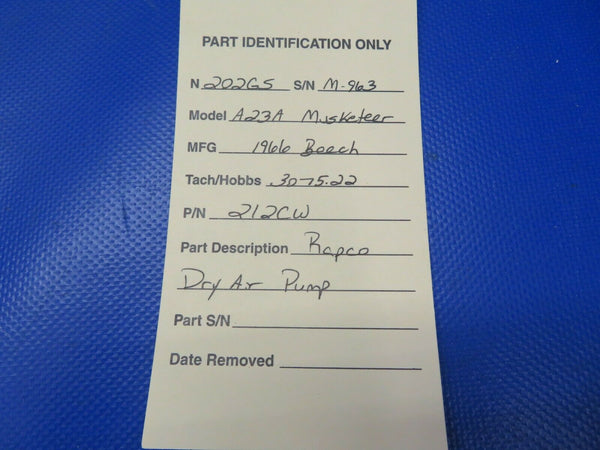 PART IDENTIFICATION ONLY
N 202GS S/N M-963
Model A23A Musketeer
MFG 1966 Beech
Tach/Hobbs 3075.22
P/N 212CW
Part Description Rapco
Dry Air Pump
Part S/N
Date Removed